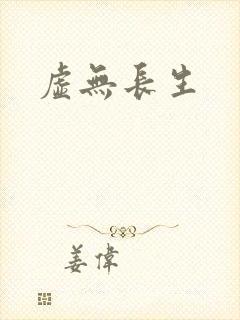 虛無長生
姜偉